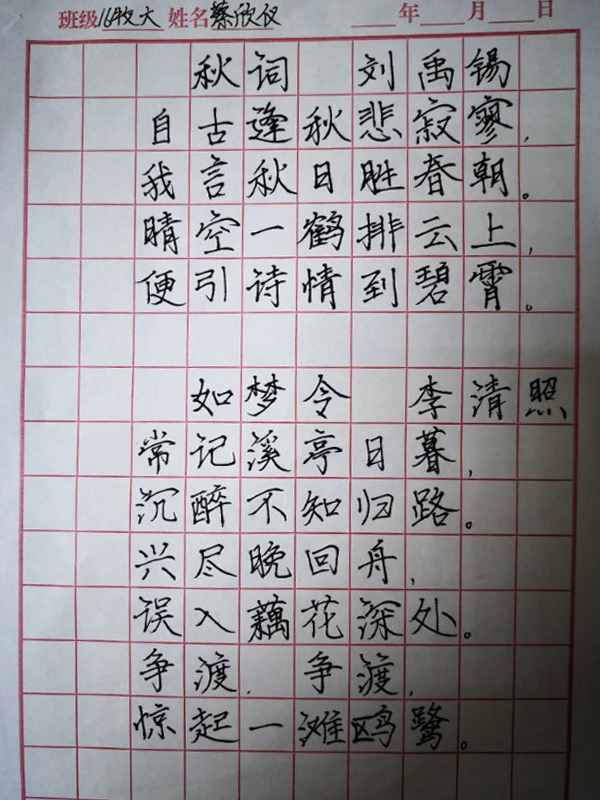 班级16牧大 姓名蔡欣仪 年 月 日
秋词 刘禹锡
自古逢秋悲寂寥,
我言秋日胜春朝。
晴空一鹤排云上,
便引诗情到碧霄。
如梦令 李清照
常记溪亭日暮,
沉醉不知归路。
兴尽晚回舟,
误入藕花深处。
争渡,争渡,
惊起一滩鸥鹭。